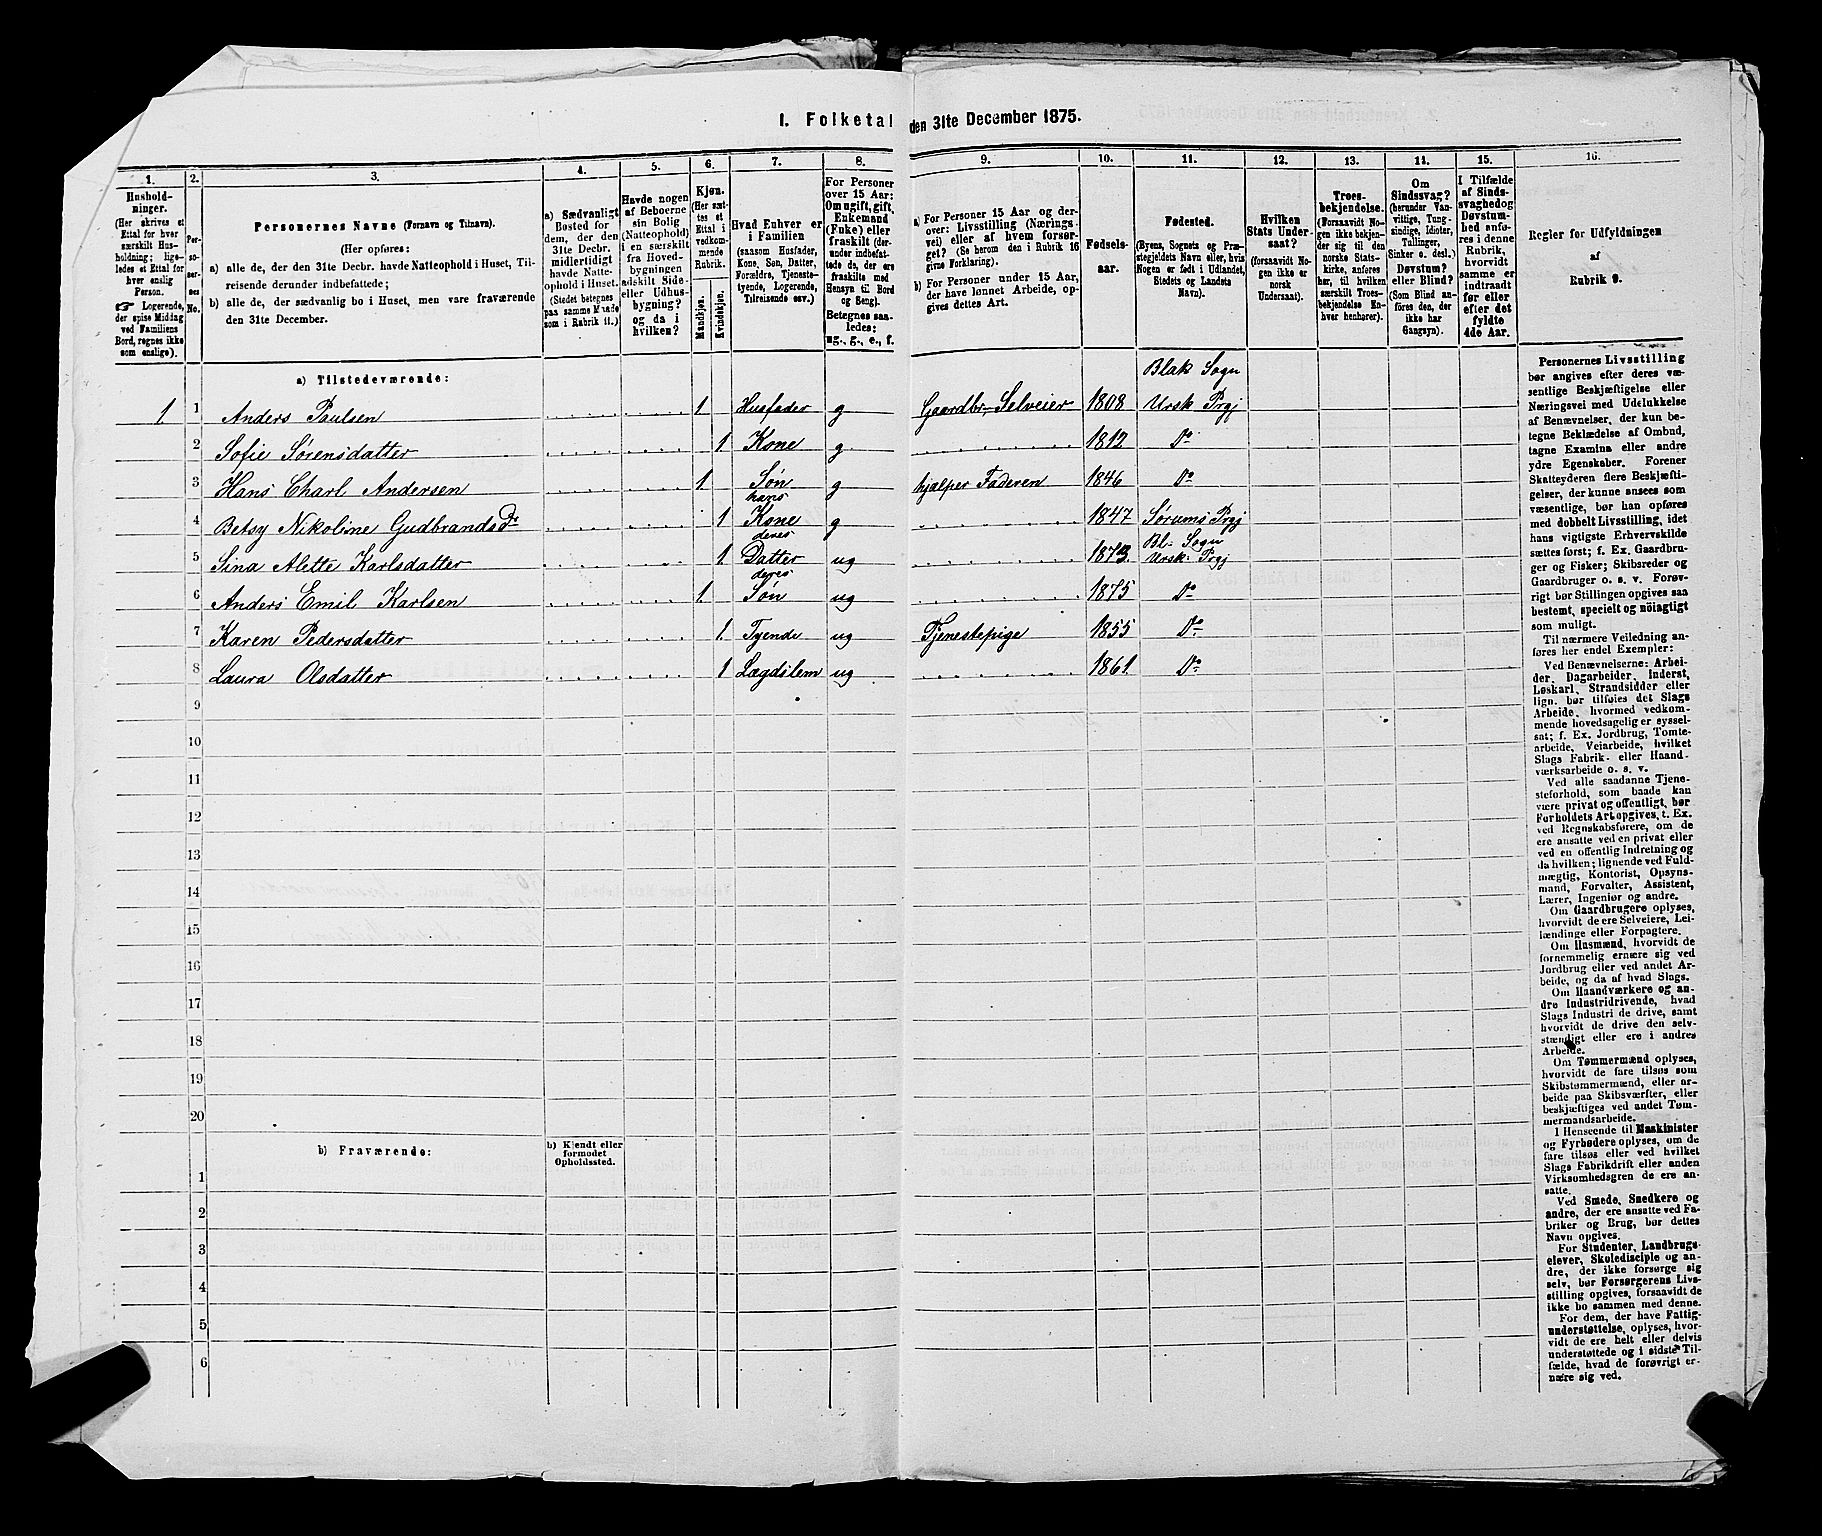 I. Folketal den 31te December 1875.
1. 2. 3. 4. 5. 6. 7. 8. 9. 10. 11. 12. 13. 14. 15. 16.
Husholdninger.
(Her skrives et
Ettal for hver
særskilt Husholdning;
ligeledes et Ettal for
hver enslig
Person.
☞ Logerende,
der spise Middag
ved Familiens
Bord, regnes ikke
som enslige).
Personernes No.
Personernes Navne (Fornavn og Tilnavn).
(Her opføres:
a) alle de, der den 31te Decbr. havde Natteophold i Huset, Tilreisende
derunder indbefattede;
b) alle de, der sædvanlig bo i Huset, men vare fraværende
den 31te December.
a) Sædvanligt
Bosted for
dem, der den
31te Decbr.
midlertidigt
havde Natteophold
i Huset.
(Stedet betegnes
paa samme Maade
som i Rubrik 11.)
Havde nogen
af Beboerne
sin Bolig
(Natteophold)
i en særskilt
fra Hovedbygningen
adskilt Side-
eller Udhusbygning?
og da i
hvilken?
Kjøn.
(Her sættes
et
Ettal i
vedkommende
Rubrik.
Mandkjøn.
Kvindekjøn.
Hvad Enhver er
i Familien
(saasom Husfader,
Kone, Søn, Datter,
Forældre, Tjenestetyende,
Logerende,
Tilreisende osv.)
For Personer
over 15 Aar:
Om ugift, gift,
Enkemand
(Enke) eller
fraskilt (derunder
indbefattede
de, der ere
fraskilte med
Hensyn til Bord
og Seng).
Betegnes saaledes:
ug., g., e., f.
a) For Personer 15 Aar og derover:
Livsstilling (Næringsvei)
eller af hvem forsørget?
(Se herom den i Rubrik 16
givne Forklaring).
b) For Personer under 15 Aar,
der have lønnet Arbeide, opgives
dettes Art.
Fødselsaar.
Fødested.
(Byens, Sognets og Præstegjeldets
Navn eller, hvis
Nogen er født i Udlandet,
Stedets og Landets
Navn).
Hvilken
Stats Undersaat?
(forsaavidt Nogen
ikke er
norsk
Undersaat).
Troesbekjendelse.
(Forsaavidt Nogen
ikke bekjender
sig til den
norske Statskirke,
anføres
her, til hvilken
særskilt Troesbekjendelse
Enhver
henhører).
Om
Sindssvag?
(herunder Vanvittige,
Tungsindige,
Idioter,
Tullinger,
Sinker o. desl.)
Døvstum?
eller Blind?
(Som Blind anføres
den, der
ikke har
Gangsyn).
I Tilfælde
af Sindssvaghed
og
Døvstumhed
anføres
i denne
Rubrik,
hvorvidt
samme er
indtraadt
før eller
efter det
fyldte
4de Aar.
Regler for Udfyldningen
af
Rubrik 9.
a) Tilstedeværende:
Blak Sogn
1 1 Anders Paulsen 1 Husfader g Gaardbr. Selveier 1808 Ursk Prgj
2 Sofie Sørensdatter 1 Kone g 1812 Do
3 Hans Charl Andersen 1 Søn g hjælper Faderen 1846 Do
hans
4 Betsy Nikoline Gudbrandsdr 1 Kone g 1847 Sørums Prgj
deres Bl. Sogn
5 Sina Alette Karlsdatter 1 Datter ug 1873. Ursk Prgj
deres
6 Anders Emil Karlsen 1 Søn ug 1875 Do
7 Karen Pedersdatter 1 Tyende ug Tjenestepige 1855 Do
8 Laura Olsdatter 1 Lægdslem ug 1861. Do
9
10
11
12
13
14
15
16
17
18
19
20
b) Fraværende:
b) Kjendt eller
formodet
Opholdssted.
1
2
3
4
5
6
Personernes Livsstilling
bør angives efter deres væsentlige
Beskjæftigelse eller
Næringsvei med Udelukkelse
af Benævnelser, der kun betegne
Beklædelse af Ombud,
tagne Examina eller andre
ydre Egenskaber. Forener
Skatteyderen flere Beskjæftigelser,
der kunne ansees som
væsentlige, bør han opføres
med dobbelt Livsstilling, idet
hans vigtigste Erhvervskilde
sættes først; f. Ex. Gaardbruger
og Fisker; Skibsreder og
Gaardbruger o. s. v. Forøvrigt
bør Stillingen opgives saa
bestemt, specielt og nöiagtigt
som muligt.
Til nærmere Veiledning anføres
her endel Exempler:
Ved Benævnelserne: Arbeider,
Dagarbeider, Inderst,
Løskarl, Strandsidder eller
lign. bør tilføies det Slags
Arbeide, hvormed vedkommende
hovedsagelig er sysselsat;
f. Ex. Jordbrug, Tomtearbeide,
Veiarbeide, hvilket
Slags Fabrik- eller Haandværksarbeide
o. s. v.
Ved alle saadanne Tjenesteforhold,
som baade kan
være privat og offentligt, bør
Forholdets Art opgives, t. Ex.
ved Regnskabsførere, om de
ere ansatte ved en privat eller
ved en offentlig Indretning og
da hvilken; lignende ved Fuldmægtig,
Kontorist, Opsynsmand,
Forvalter, Assistent,
Lærer, Ingeniør og andre.
Om Gaardbrugere oplyses,
hvorvidt de ere Selveiere, Leilændinge
eller Forpagtere.
Om Husmænd, hvorvidt de
fornemmelig ernære sig ved
Jordbrug eller ved andet Arbeide,
og da af hvad Slags.
Om Haandværkere og andre
Industridrivende, hvad
Slags Industri de drive, samt
hvorvidt de drive den selvstændigt
eller ere i andres
Arbeide.
Om Tømmermænd oplyses,
hvorvidt de fare tilsøs som
Skibstømmermænd, eller arbeide
paa Skibsværfter, eller
beskjæftiges ved andet Tømmermandsarbeide.
I Henseende til Maskinister
og Fyrbødere oplyses, om de
fare tilsøs eller ved hvilket
Slags Fabrikdrift eller anden
Virksomhedsgren de ere ansatte.
Ved Smede, Snedkere og
andre, der ere ansatte ved Fabriker
og Brug, bør dettes
Navn opgives.
For Studenter, Landbrugselever,
Skoledisciple og andre,
der ikke forsørge sig
selv, bør Forsørgerens Livsstilling
opgives, forsaavidt de
ikke bo sammen med denne.
For dem, der have Fattigunderstøttelse,
oplyses, hvorvidt
de ere helt eller delvis
understøttede og i sidste Tilfælde,
hvad de forøvrigt ernære
sig ved.